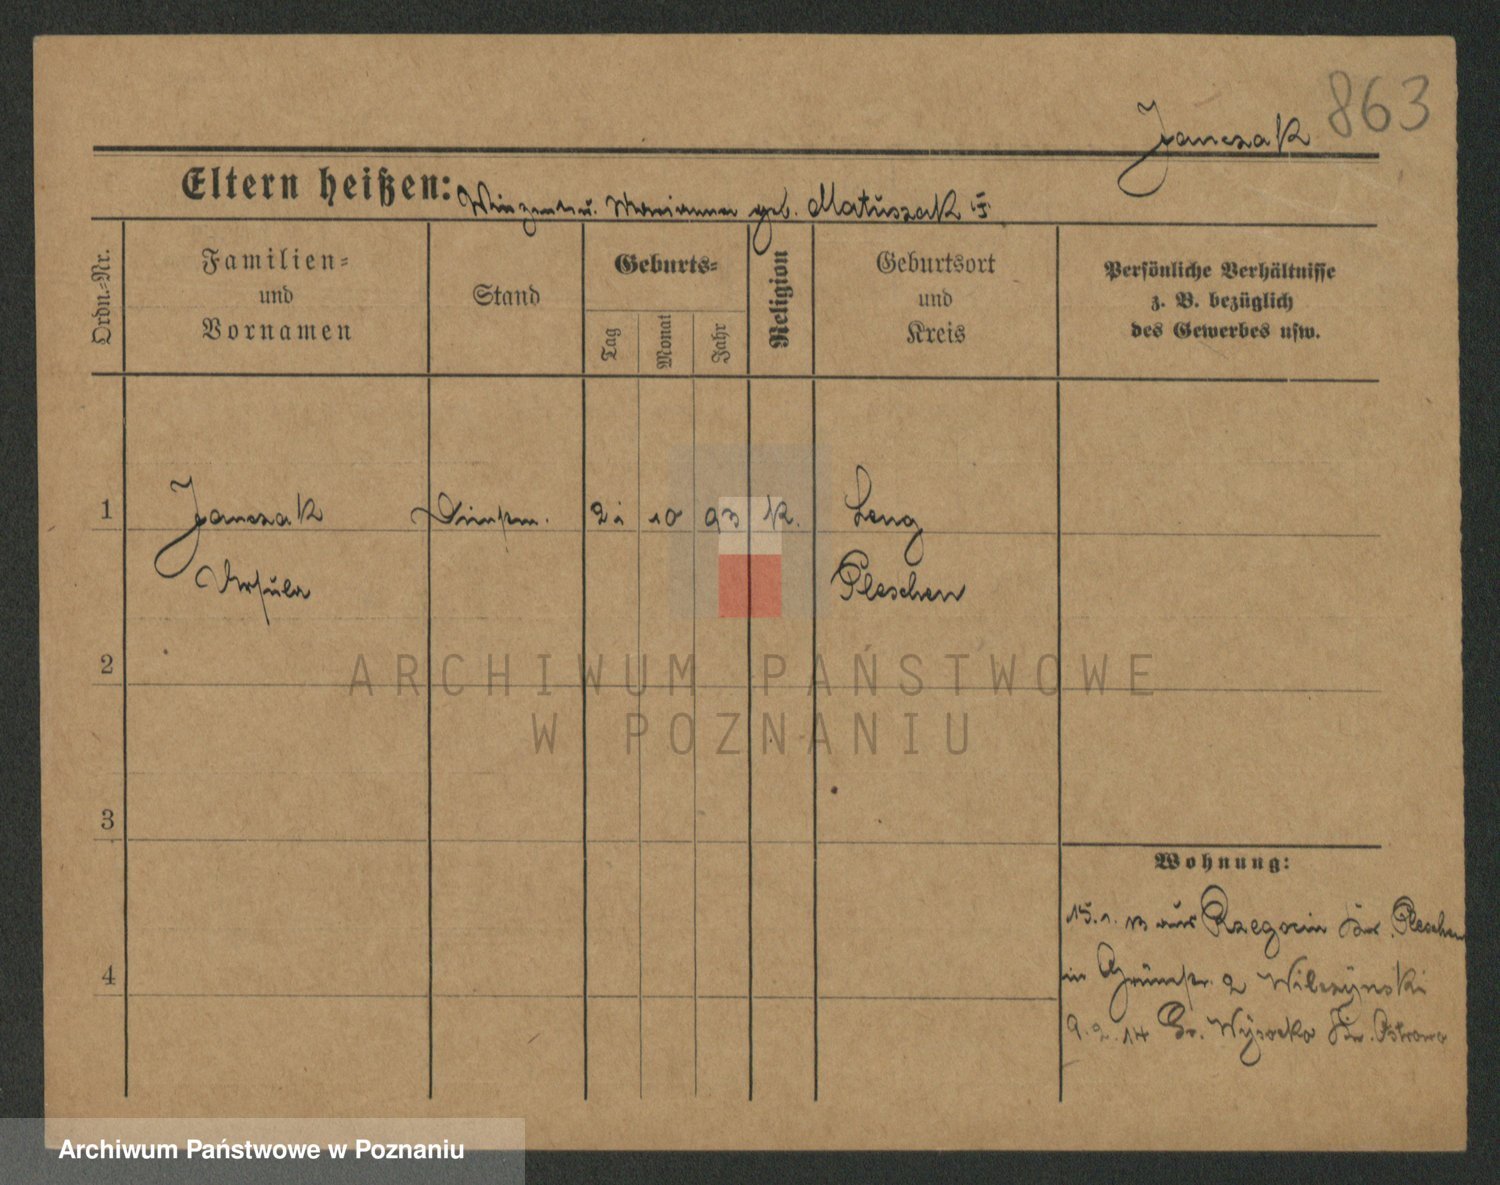 863
Janczak
Eltern heißen: Winzent u. Marianna geb. Matuszak
Ordn.-Nr.
Familien-
und
Vornamen
Stand
Geburts-
Tag
Monat
Jahr
Religion
Geburtsort
und
Kreis
Persönliche Verhältnisse
z. B. bezüglich
des Gewerbes usw.
1 Janczak 21 10 93 K. Leng
Ursula Pleschen
2
ARCHIWUM PAŃSTWOWE
W POZNANIU
3
Wohnung:
15.1.13 aus Rzegocin Kr. Pleschen
in Grünstr. 2 Wilczynski
4
9.2.14 Gr. Wysocko Kr. Ostrowo
Archiwum Państwowe w Poznaniu